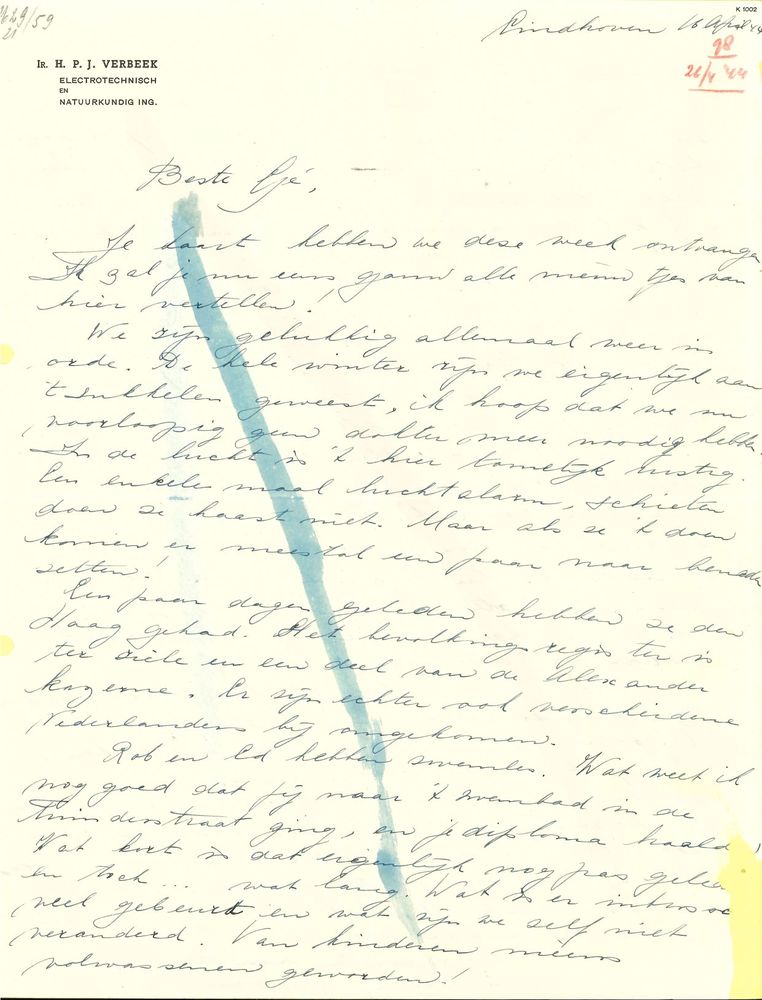 K 1002
21/59
Eindhoven 16 April 44
98
26/4 '44
IR. H. P. J. VERBEEK
ELECTROTECHNISCH
EN
NATUURKUNDIG ING.
Beste Gé,
Je kaart hebben we deze week ontvangen
Ik zal je nu eens gauw alle nieuwtjes van
hier vertellen!
We zijn gelukkig allemaal weer in
orde. De hele winter zijn we eigenlijk aan
't sukkelen geweest, ik hoop dat we nu
voorloopig geen dokter meer noodig hebben.
In de lucht is 't hier tamelijk rustig.
Een enkele maal luchtalarm, schieten
doen ze haast niet. Maar als ze 't doen
komen er meestal een paar naar beneden
zetten!
Een paar dagen geleden hebben ze den
Haag gehad. Het bevolkingsregister is
ter ziele en een deel van de Alexander
kazerne. Er zijn echter ook verscheidene
Nederlanders bij omgekomen.
Rob en Ed hebben zwemles. Wat weet ik
nog goed dat jij naar 't zwembad in de
straat ging, en je diploma haalde!
Wat kort is dat eigenlijk nog pas geleden
en toch ... wat lang. Wat is er intusschen
veel gebeurd en wat zijn we zelf niet
veranderd. Van kinderen ineens
volwassenen geworden!